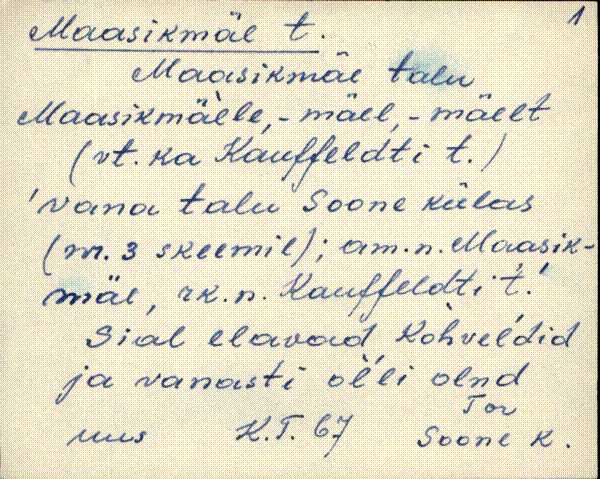 1
Maasikmäe t.
Maasikmäe talu
Maasikmäele, -mäel, -mäelt
(vt. ka Kauffeldti t.)
'vana talu Soone külas
(nr. 3 skeemil); am.n. Maasik-
mäe, rk.n. Kauffeldti t.'
Sial elavad Kohvel'did
ja vanasti ol'li olnd
uus K.T. 67 Tor
Soone k.